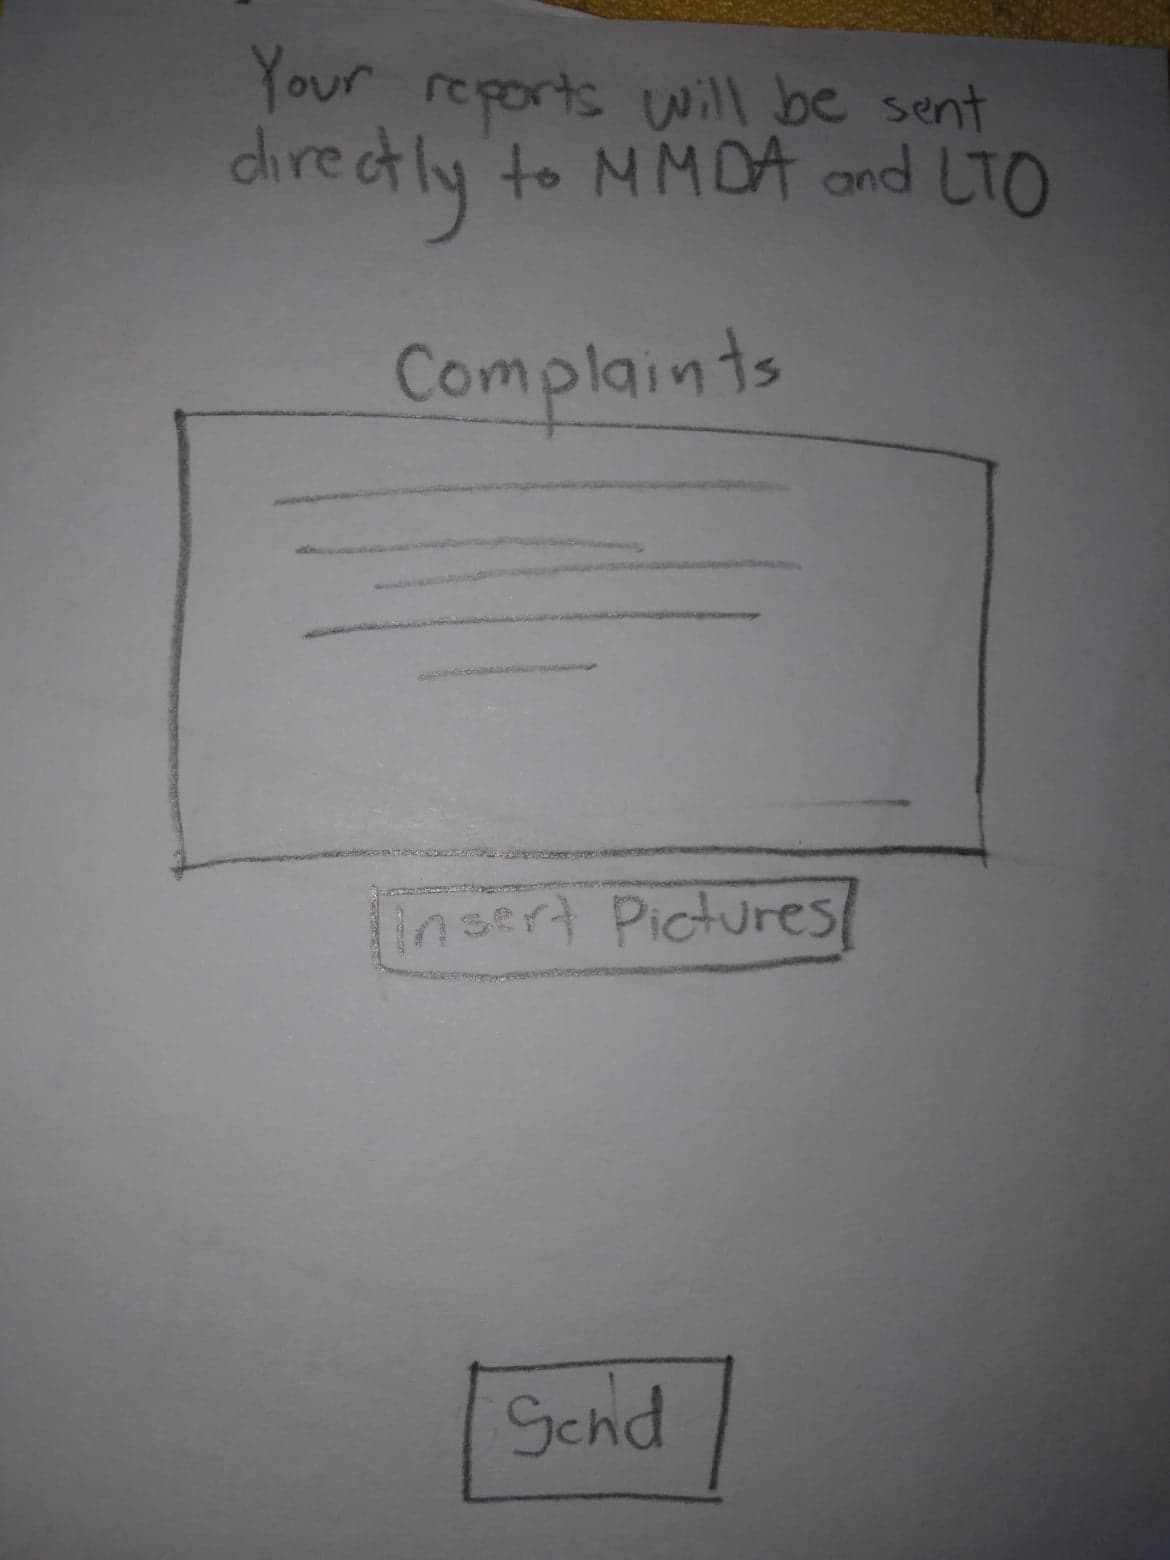 Your reports will be sent
directly to MMDA and LTO
Complaints
Insert Pictures
Send